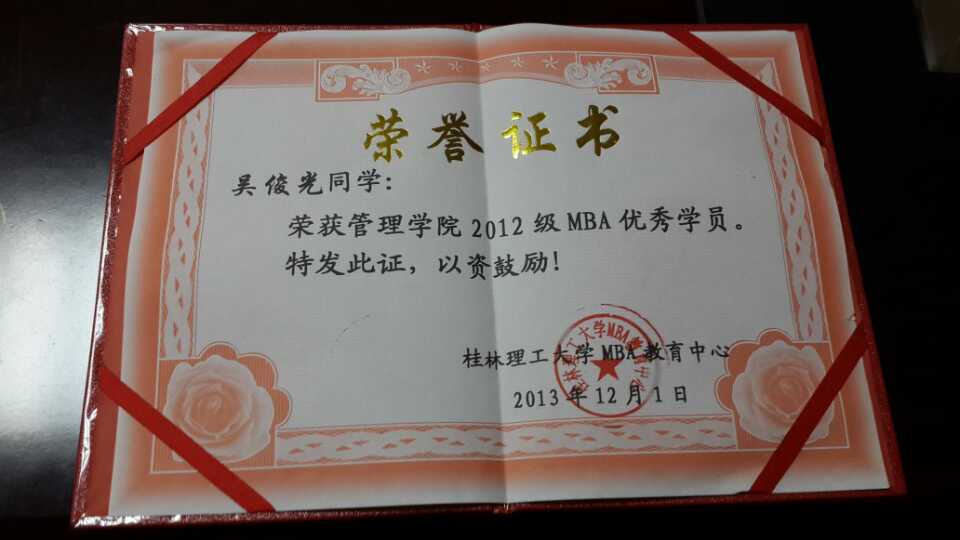 荣誉证书
吴俊光同学：
荣获管理学院2012级MBA优秀学员。
特发此证，以资鼓励！
桂林理工大学MBA教育中心
2013年12月1日
桂林理工大学MBA教育中心